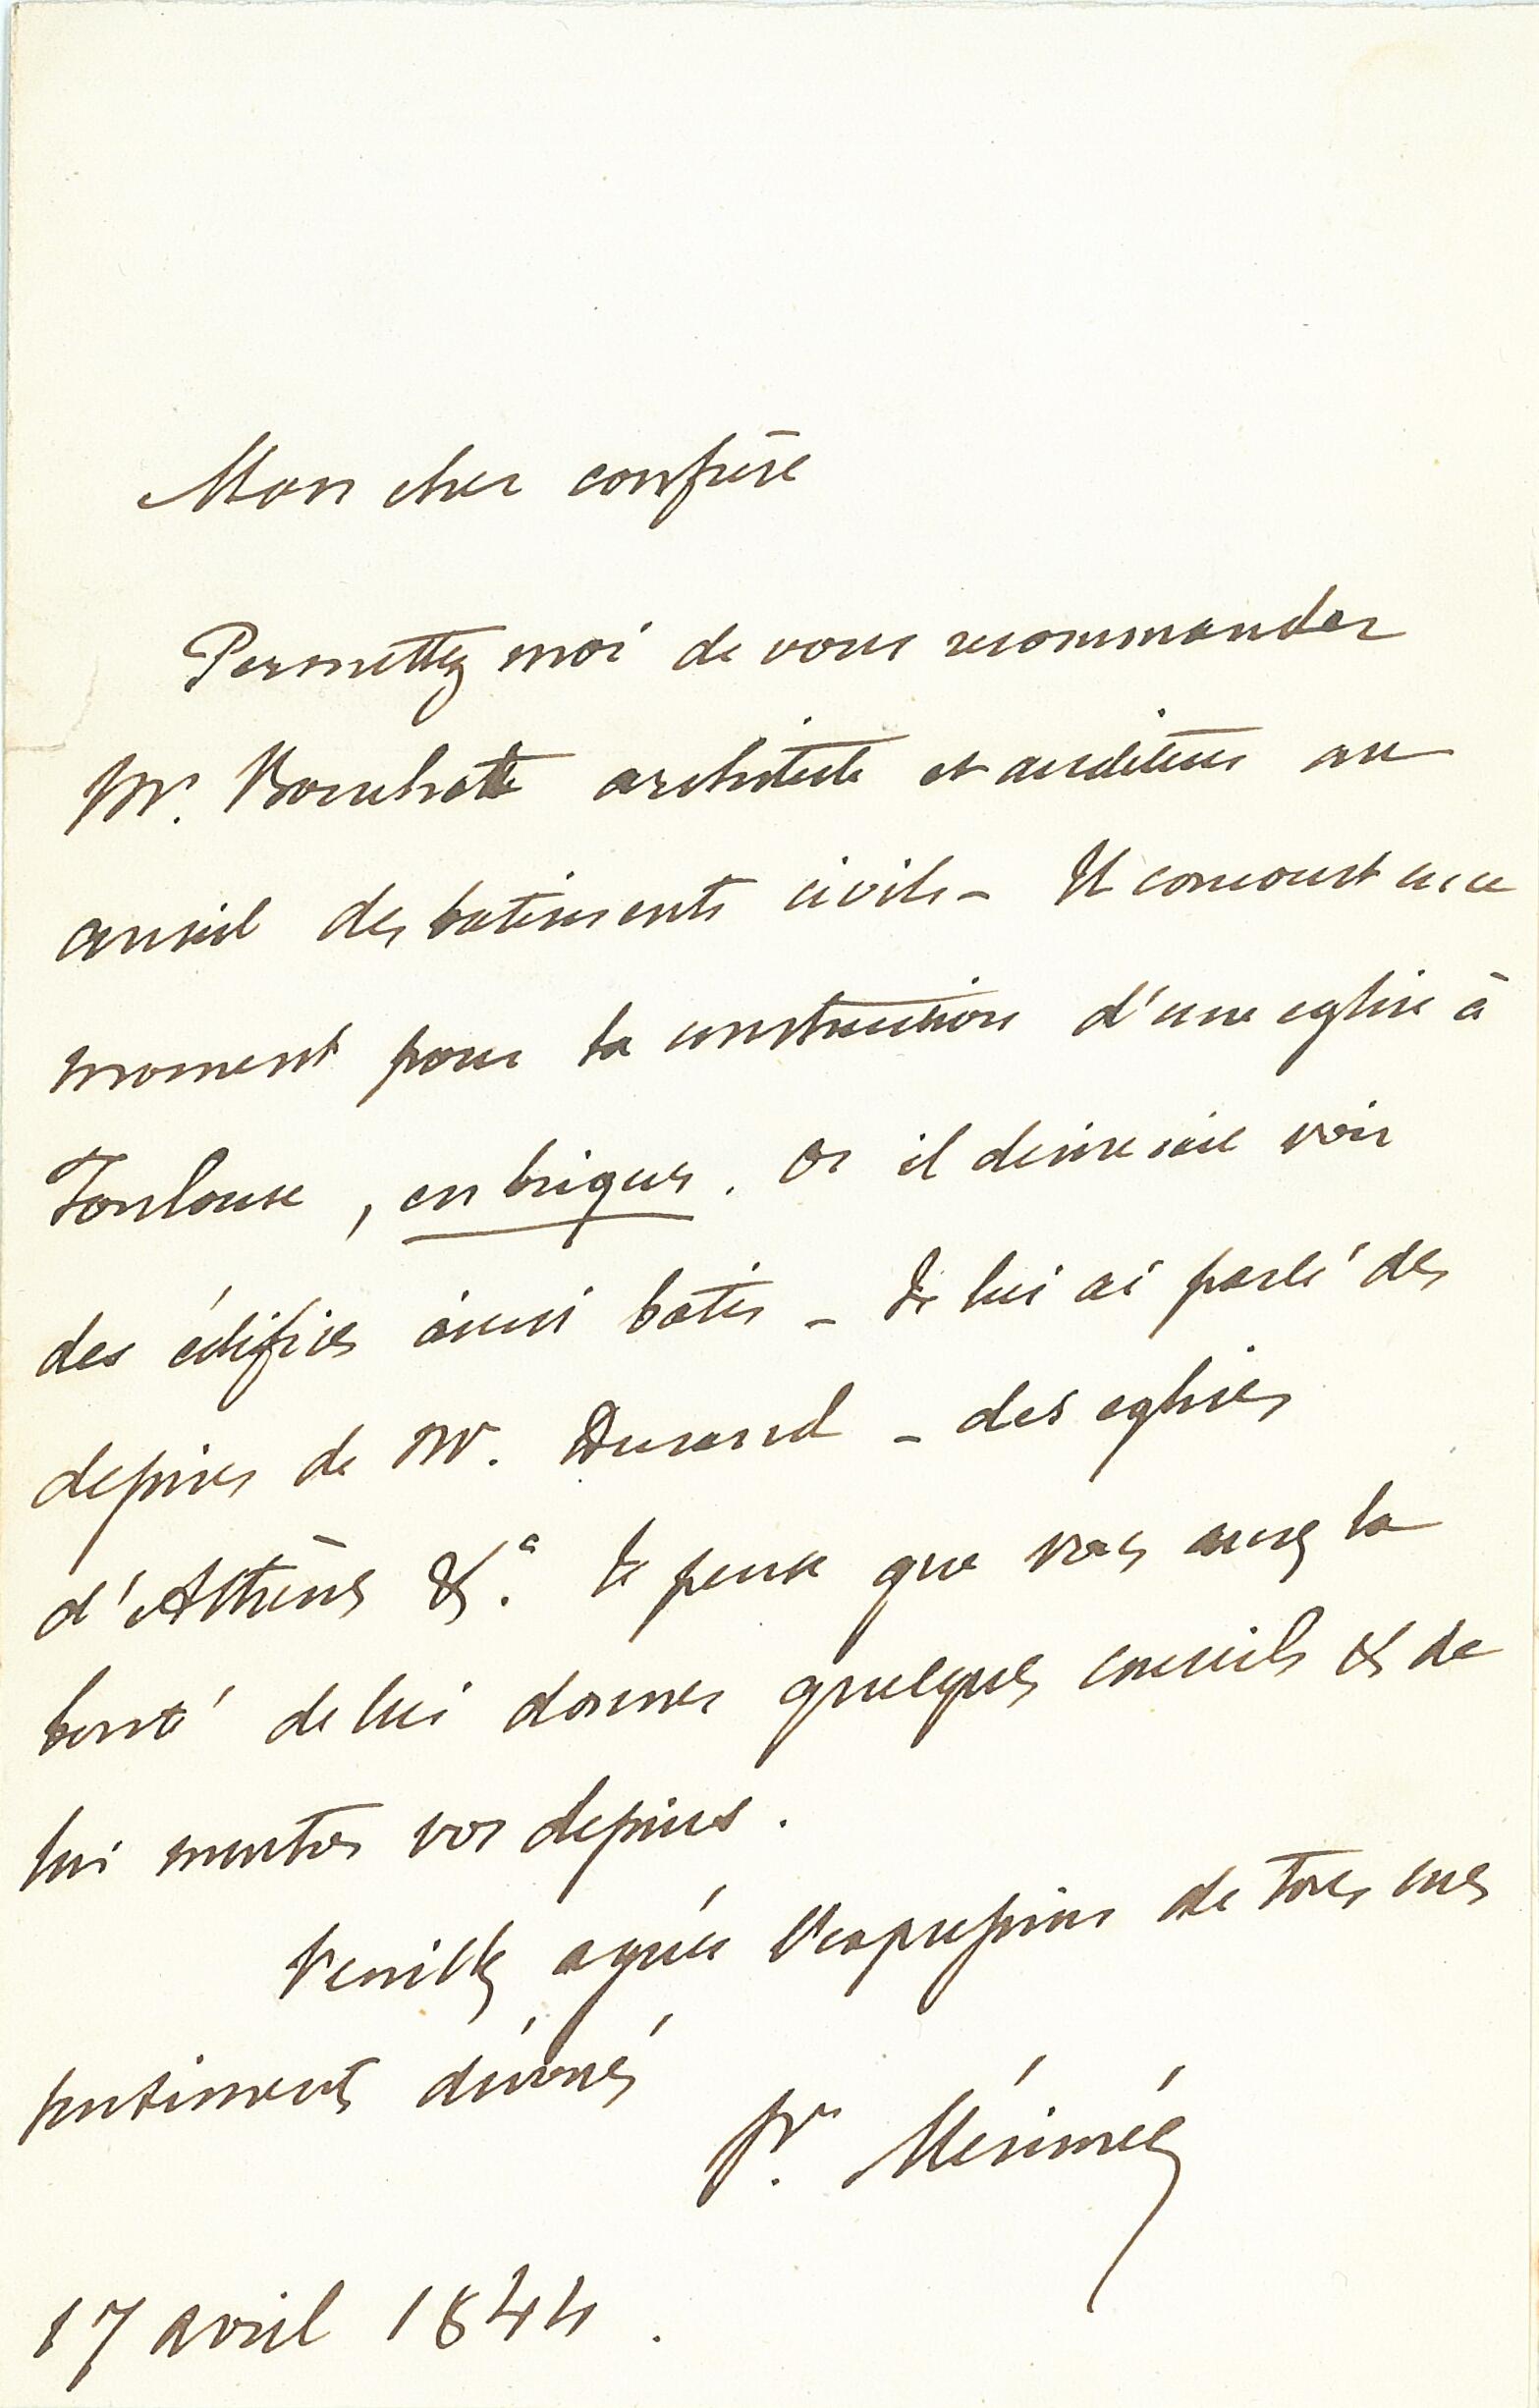 Mon cher confrère
Permettez moi de vous recommander
Mr. architecte et auditeur au
conseil des batiments civils – Il concourt en ce
moment pour la construction d'une eglise à
Toulouse, en briques. Or il desirerait voir
des édifices ainsi batis – Je lui ai parlé des
dessins de Mr. Durand – des eglises
d'Athènes &a. Je pense que vous aurez la
bonté de lui donner quelques conseils & de
lui montrer vos dessins.
Veuillez agréer l'expression de tous mes
sentiments dévoués
Pr. Mérimée
17 avril 1844.